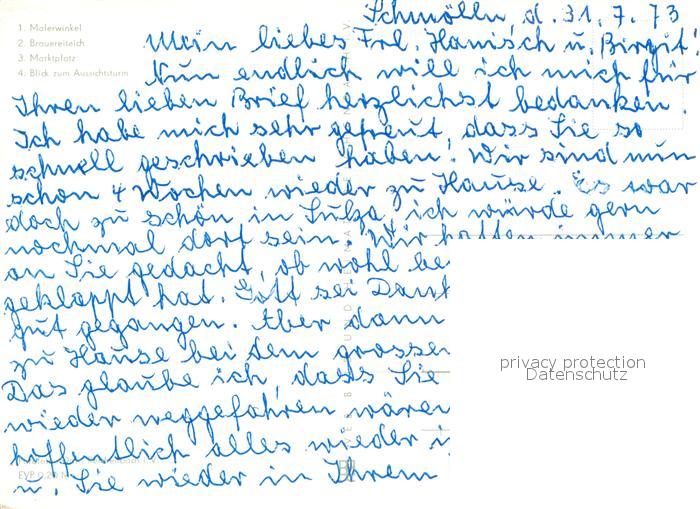 Schmölln, d. 31. 7. 73
1. Malerwinkel
2. Brauereiteich
3. Marktplatz
4. Blick zum Aussichtsturm
Mein liebes Frl. Hanisch u. Birgit!
Nun endlich will ich mich für
Ihren lieben Brief herzlichst bedanken.
Ich habe mich sehr gefreut, dass Sie so
schnell geschrieben haben. Wir sind nun
schon 4 Wochen wieder zu Hause. Es war
doch zu schön in Sulza, ich würde gern
nochmal dort sein. Wir hatten immer
an Sie gedacht, ob wohl be
geklappt hat. Gott sei Dank
gut gegangen. Aber dann
zu Hause bei dem grosse
Das glaube ich, dass Sie
wieder weggefahren wären
hoffentlich alles wieder i
u. Sie wieder in Ihrem
EVP 0,20
privacy protection
Datenschutz